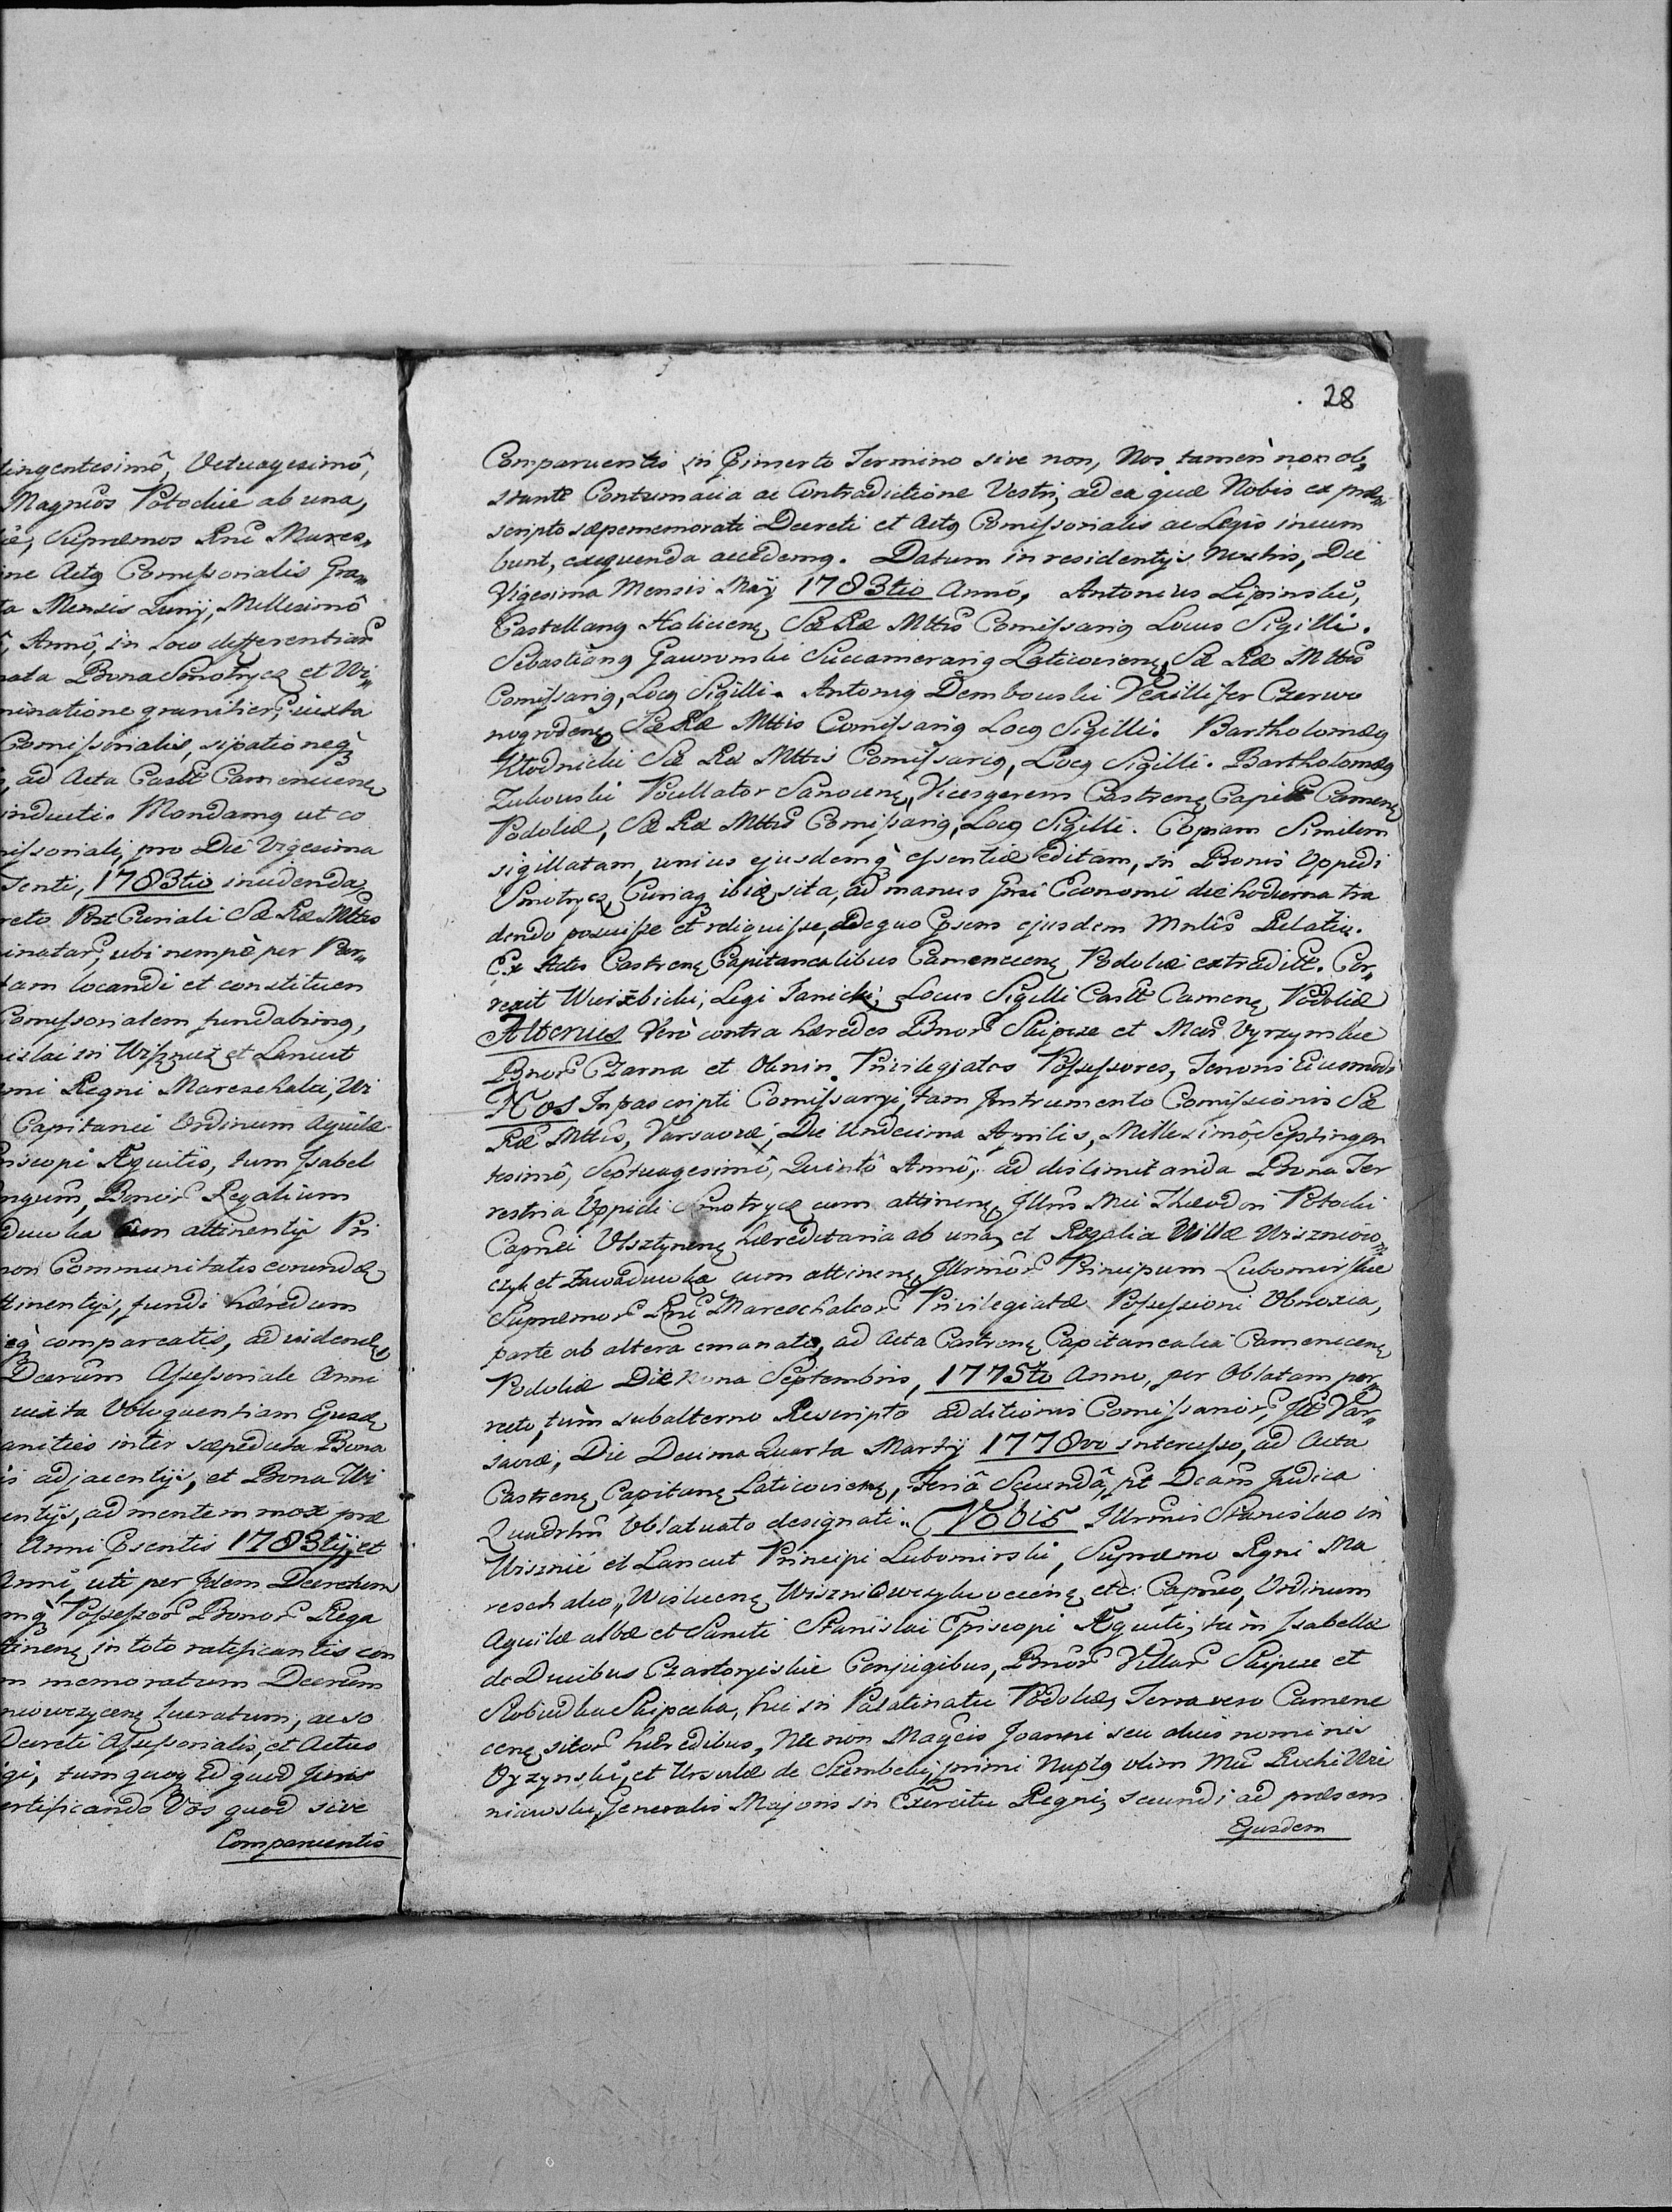 tingentesimô, Octuagesimô,
Magnĉos Potockie ab una,
Supremos Rni Mares„
ine Actq Comissorialis Gra„
ta Mensis Junij, Millesimô
Annô, in Loco differentiar
nata Bona Smotrycz et Wi„
minatione granitier, iuxta
Comissorialis, si patio neq
ad Acta Castr Camenecen
inducti. Mandamq ut co
missoriali, pro Die Vigesima
senti, 1783tio incidenda,
reto Post Curiali Sæ Ræ Mttis
inatar, ubi nempè per Par„
tam locandi et constituen
Comissorialem fundabimq,
islai in Wisznicz et Lancut
mi Regni Mareschalci, Wi
Capitanei Ordinum Aquilæ
piscopi Equitis, tum Isabel
ngum, Bonor Regalium
duwka cum attinentijs Pri
non Communitatis eorundæ
ttinentijs, fundi hæredum
iq comparcatis, ad videnda
Decretum Assessoriale Anni
iuxta Obloquentiam Ejusd
anities inter sæpedicta Bona
is adjacentijs, et Bona Wi
entijs, ad mentem mox præ
Anni Psentis 1783tij et
Anni, uti per Idem Decretum
mq Possessor Bonor Rega
ttinen in toto ratificantis con
m memoratum Decretum
niowczycen lucratum, ac so
Decreti Assessorialis, et Actus
gi, tum quoq id quod Juris
ertificando Vos quod sive
Comparueritis
28
Comparueritis in Pinserto Termino sive non, Nos tamen non ob„
stante Contumacia ac Contradictione Vestri, ad ea quæ Nobis ex præ„
scripto sæpememorati Decreti et Actq Comissorialis ac Legis incum
bunt, exequenda accedemq. Datum in residentijs Nostris, Die
Vigesima Mensis Maij 1783tio Annô, Antonius Lipinski,
Castellanq Halicien, Sæ Ræ Mttis Comissariq Locus Sigilli.
Sebastianq Gawronski Succamerariq Laticovien, Sæ Ræ Mttis
Comissariq, Locq Sigilli. Antoniq Dembowski Vexillifer Czerwo
nogroden Sæ Ræ Mttis Comissariq Locq Sigilli. Bartholomæq
Kłodnicki Sæ Ræ Mttis Comissariq, Locq Sigilli. Bartholomæq
Zukowski Pocillator Sanocen, Vicesgerens Castren Capit Camen
Podoliæ, Sæ Ræ Mttis Comissariq, Locq Sigilli. Copiam Similem
sigillatam, unius ejusdemq essentiæ editam, in Bonis Oppidi
Smotrycz, Curiaq ibiq sita, ad manus Gnsi Economi die hodierna tra
dendo posuisse et reliquisse, de quo Psens ejusdem Mnlis Relatio.
Ex Actis Castren Capitanealibus Camenecen Podoliæ extraditt. Cor„
rexit Wierzbicki, Legi Janicki Locus Sigilli Castr Camen Podoliæ
Alterius Verò contra hæredes Bnor Skipcze et Mcos Oyrzynskie
Bnor Czarna et Olenin Privilegiatos Possessores, Tenoris Eiusmodi
Nos Infrascripti Comissarij, tam Instrumento Comissionis Sæ
Ræ Mttis, Varsaviæ, Die Undecima Aprilis, Millesimô Septingen
tesimô, Septuagesimô, Quintô Annô, ad dislimitanda Bona Ter
restria Oppidi Smotrycz cum attinen, Illris Mci Theodori Potocki
Capnei Olsztynen hæreditaria ab una, et Regalia Villæ Wiszniow
czyk et Zawaduwka cum attinen Illrmor Principum Lubomirskie
Supremor Rni Mareschalcor Privilegiatæ Possessioni Obnoxia,
parte ab altera emanato, ad Acta Castren Capitanealia Camenecen
Podoliæ Die Nona Septembris, 1775to Anno, per Oblatam por„
recto, tùm subalterno Rescripto additionis Comissarior, Itt Var„
saviæ, Die Decima Quarta Martij 1778vo intercesso, ad Acta
Castren Capitan Laticovien, Feriâ Secundâ, pt Dcam Judica
Quadrlem Oblatuato designati. Vobis Illrmis Stanislao in
Wisznic et Lancut Principi Lubomirski, Supremo Rgni Ma
reschalco, Wislicen, Wiszniowczykovecen etc. Capneo, Ordinum
Aquilæ albæ et Sancti Stanislai Episcopi Equiti, tùm Isabellæ
de Ducibus Czartoryiskie Conjugibus, Bnor Villar Skipcze et
Slobudka Skipecka, hic in Palatinatu Podoliæ, Terra vero Camene
cen sitor hæredibus, Nec non Magcis Joanni seu alius nominis
Oyrzynski, et Ursulæ de Szembeki, primi Nuptq olim Mci Ruchi Wie
niawski, Generalis Majoris in Exercitu Regni, secundi ad præsens
Ejusdem